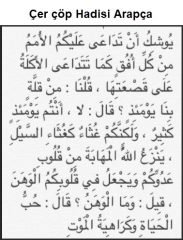 Çer çöp Hadisi Arapça
يُوشِكُ أَنْ تَدَاعَى عَلَيْكُمُ الأُمَمُ
مِنْ كُلِّ أُفُقٍ كَمَا تَتَدَاعَى الأَكَلَةُ
عَلَى قَصْعَتِهَا ، قُلْنَا : مِنْ قِلَّةٍ
بِنَا يَوْمَئِذٍ ؟ قَالَ : لا ، أَنْتُم يَوْمَئِذٍ
كَثِيرٌ ، وَلَكِنَّكُمْ غُثَاءٌ كَغُثَاءِ السَّيْلِ
، يَنْزَعُ اللهُ الْمَهَابَةَ مِنْ قُلُوبِ
عَدُوِّكُمْ وَيَجْعَلُ فِي قُلُوبِكُمُ الْوَهَنَ
، قِيلَ : وَمَا الْوَهَنُ ؟ قَالَ : حُبُّ
الْحَيَاةِ وَكَرَاهِيَةُ الْمَوْتِ